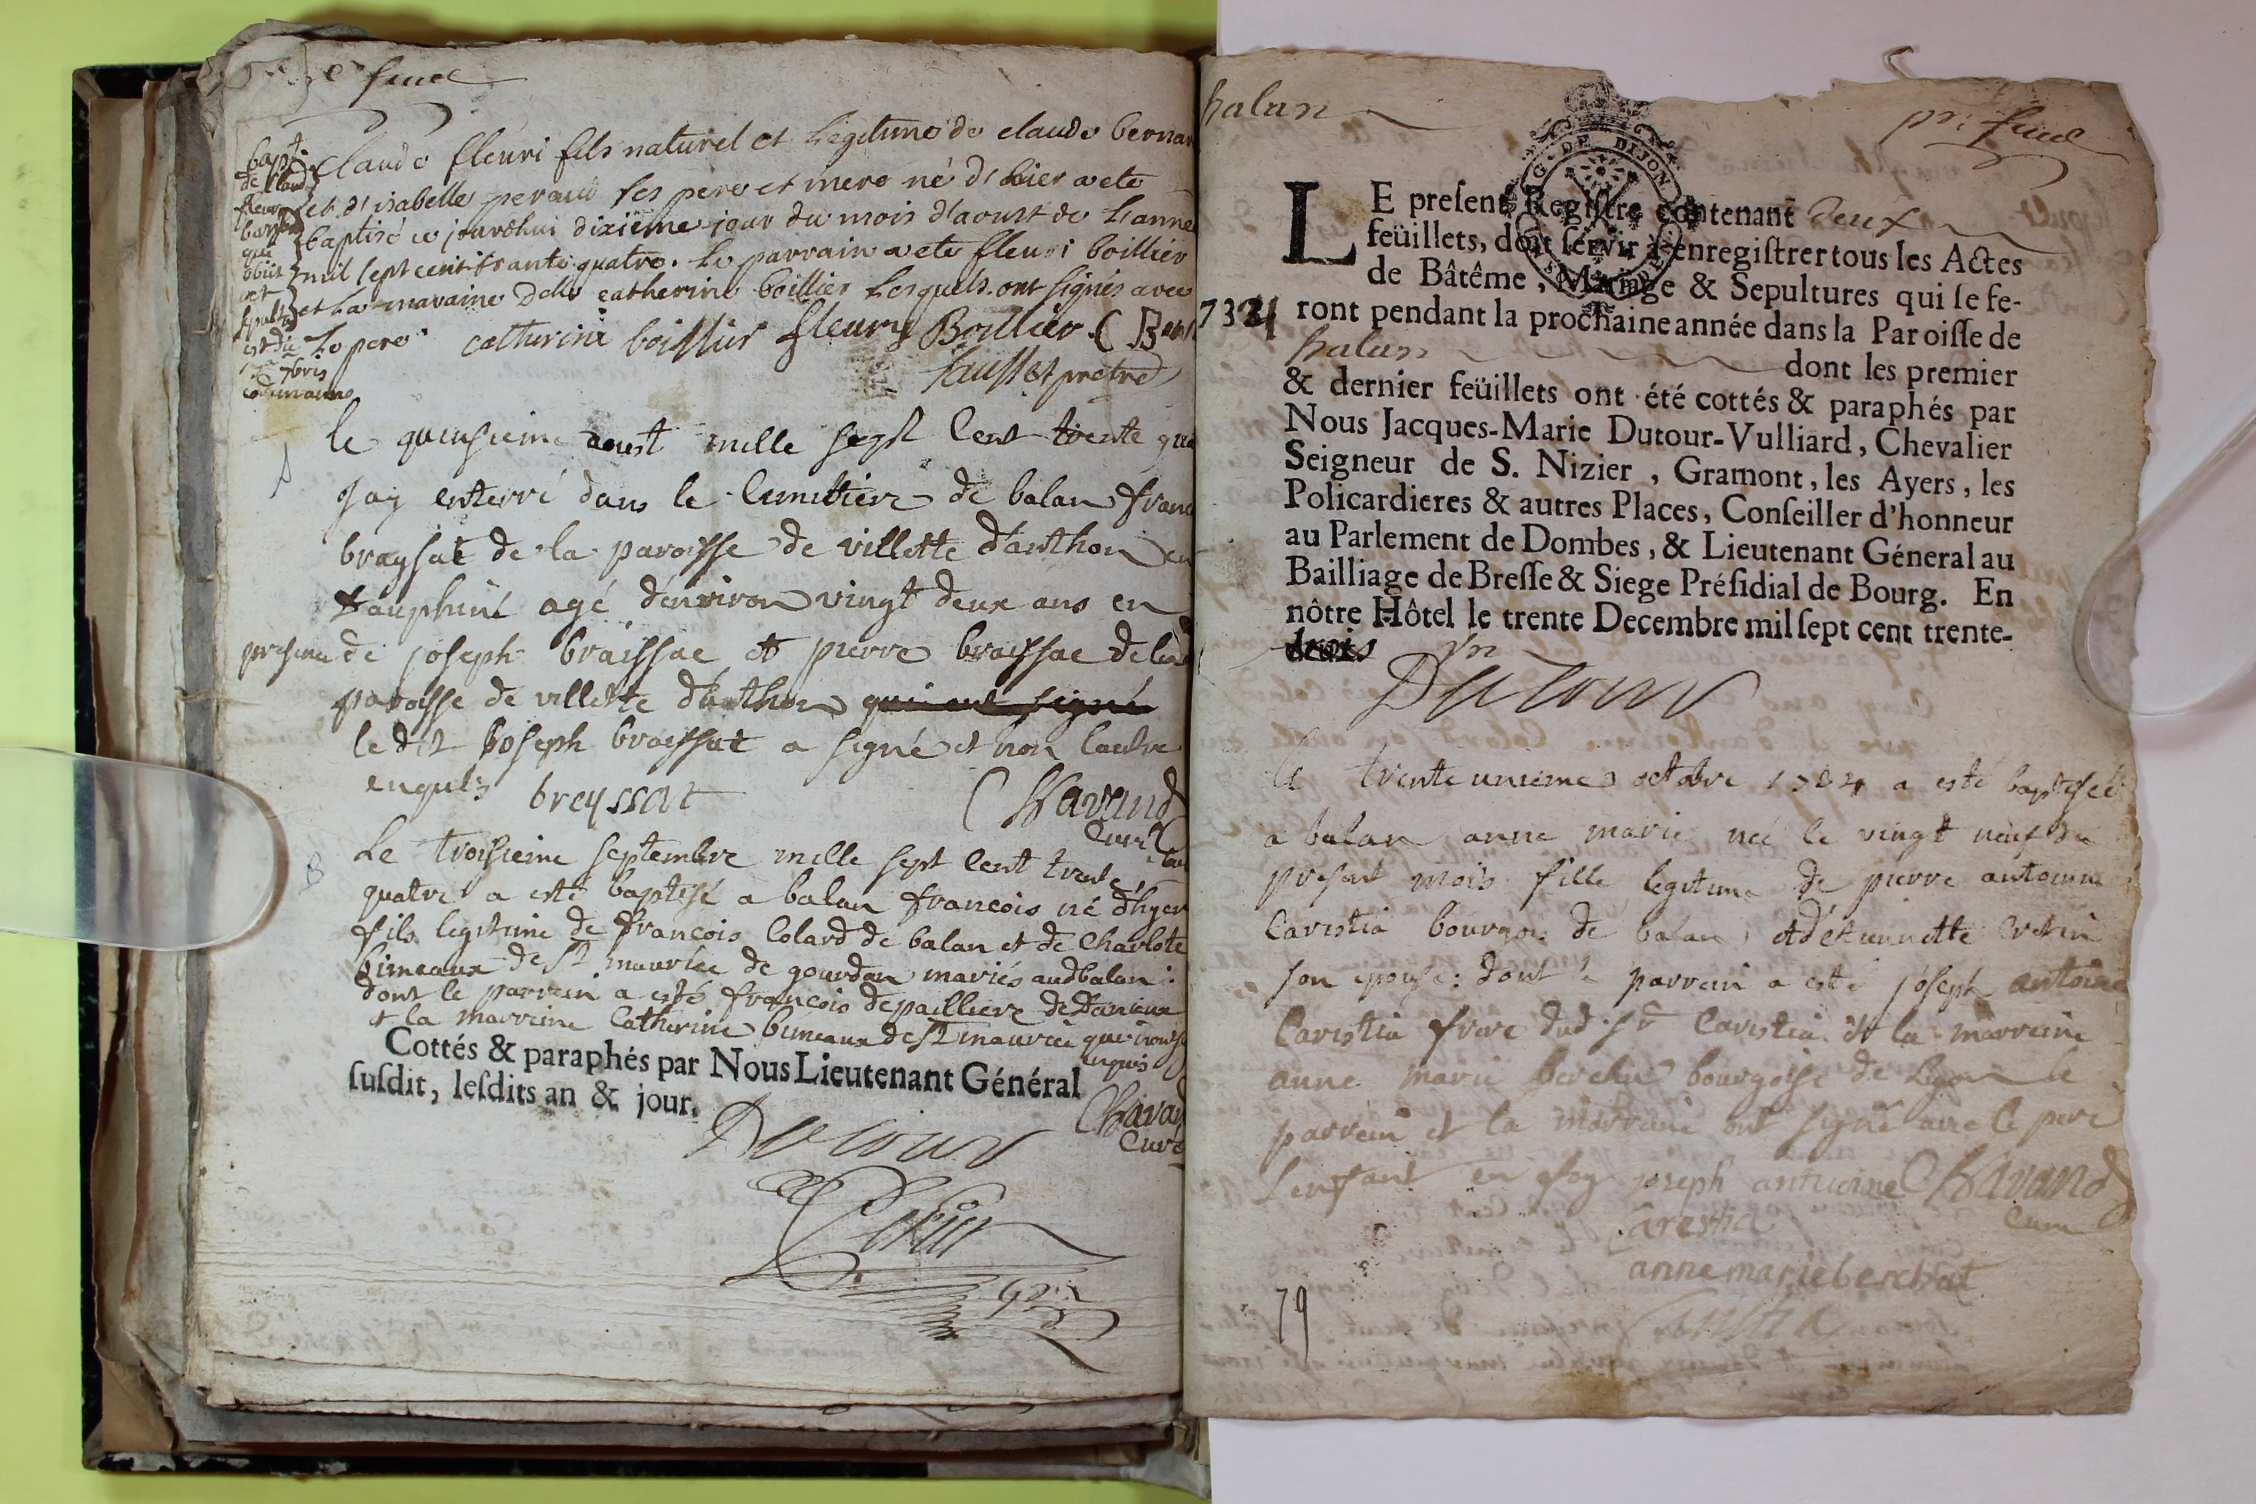 fuel
claude fleuri fils naturel et Legitime de claude bernar
et d'isabelle peraud ses pere et mere né d'hier a ete
baptisé ce jourdhui dixième jour du mois d'aoust de Lanne
mil sept cent trante quatre. Le parrain a ete fleuri boillier
et La maraine dlle catherine boillier Lesquels ont signés avec
Le pere catherine boillier fleury Boillier C Ber
faussst pretre
bapt
de claude
fleuri
bernard
qui
obiit
et
sepultus
est die
7bris
le quinsieme aoust mille sept cent trente qua
Jay enterré dans le cimettiere de balan franc
braysat de la paroisse de villette d'anthon en
dauphiné agé denviron vingt deux ans en
presence de joseph braissac et pierre braissac de la
paroisse de villette d'anthon qui ont signé
le dit Joseph braissat a signé et non lautre
enquis breyssat Chavand
Curé
Le troisieme septembre mille sept cent trente
quatre a esté baptisé a balan francois né d'hyer
fils legitime de francois Colard de balan et de Charlote
bimeaux de st maurice de gourdan mariés audbalan:
dont le parrein a esté francois depailliere de
et la marreine Catherine bimeaux de st maurice qui nont
enquis
Cottés & paraphés par Nous Lieutenant Général
susdit, lesdits an & jour. Chavand
Curé
Dutour
balan pr. fuel
G. DE DIJON
LE present Registre contenant deux
feüillets, doit servir à enregistrer tous les Actes
de Bâtême, Mariage & Sepultures qui se fe-
1734 ront pendant la prochaine année dans la Paroisse de
balan dont les premier
& dernier feüillets ont été cottés & paraphés par
Nous Jacques-Marie Dutour-Vulliard, Chevalier
Seigneur de S. Nizier, Gramont, les Ayers, les
Policardieres & autres Places, Conseiller d'honneur
au Parlement de Dombes, & Lieutenant Géneral au
Bailliage de Bresse & Siege Présidial de Bourg. En
nôtre Hôtel le trente Decembre mil sept cent trente-
trois
Dutour
le trente unieme octobre 1734 a esté baptisée
a balan anne marie née le vingt neuf du
present mois fille legitime de pierre antoine
Caristia bourgois de balan et d'etiennette
son epouse: dont le parrein a esté joseph antoine
Caristia frere dud. sr Caristia et la marreine
anne marie berchat bourgoise de Lyon le
parrein et la marreine ont signé avec le pere
Lenfant en foy joseph antuoine Chavand
Carestia Curé
anne marie berchat
79